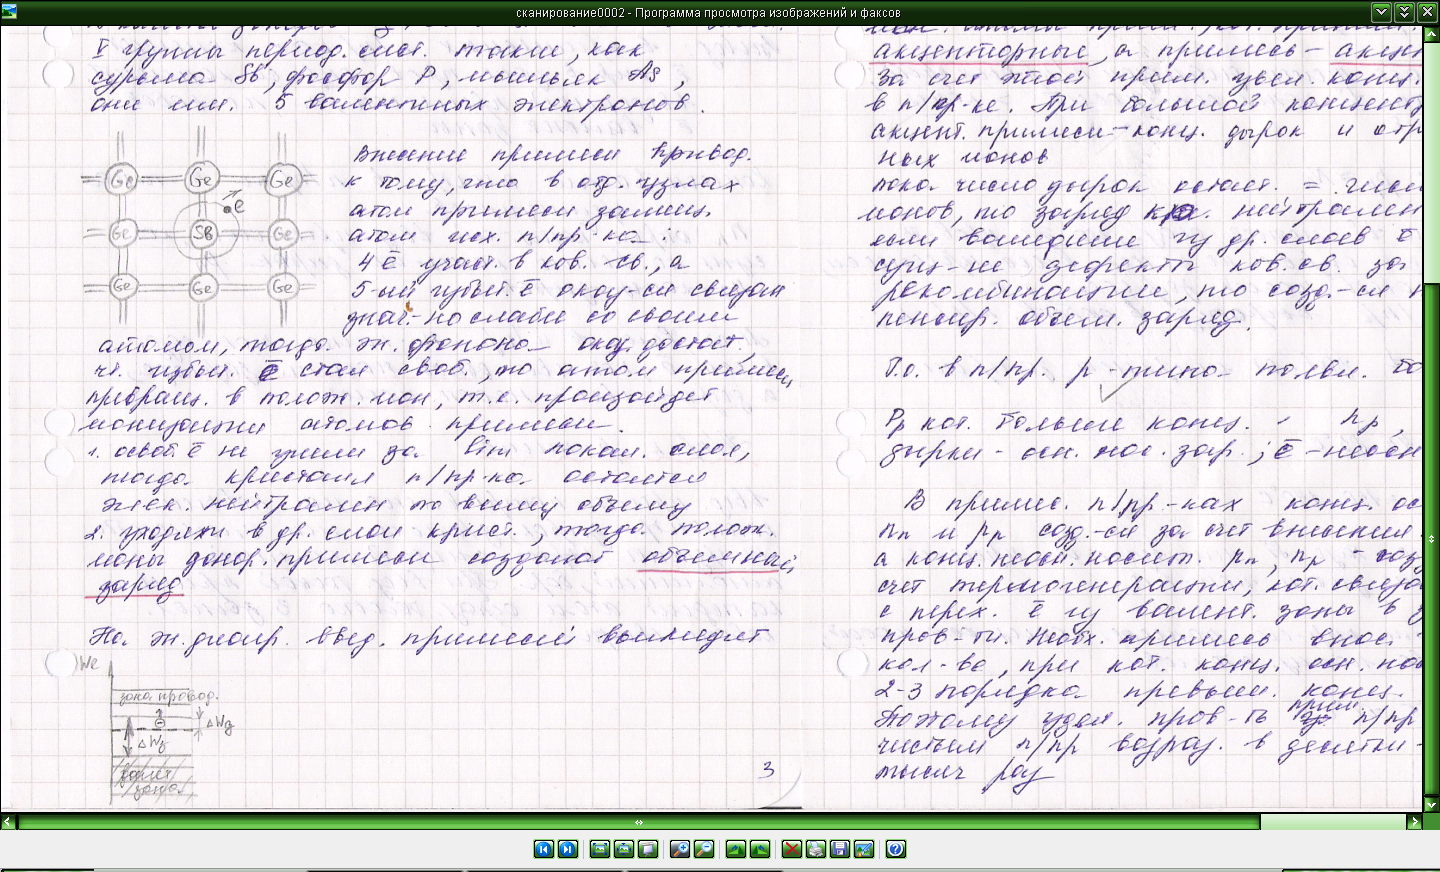 сканирование0002 - Программа просмотра изображений и факсов
V группы период. сист. такие, как
сурьма Sb, фосфор P, мышьяк As,
они им. 5 валентных электронов.
Ge Ge Ge
e
Ge Sb Ge
Ge Ge Ge
Внесение примеси привод.
к тому, что в отд. узлах
атом примеси замещ.
атом исх. п/пр-ка:
4 ē участ. в ков. св., а
5-ый избыт. ē оказ-ся связан
знач-но слабее со своим
атомом, тогда эн. фонона окаж. достат.,
чт. избыт. ē стал своб., то атом примеси
превращ. в полож. ион, т.е. произойдет
ионизация атомов примеси.
1. освоб. ē не ушли за lim локал. слоя,
тогда кристалл п/пр-ка остается
элек. нейтрален по всему объему
2. уходят в др. слои крист., тогда полож.
ионы донор. примеси создают объемный
заряд
На эн. диагр. введ. примесей выглядит
We
зона провод.
ΔWg
ΔWz
валент
зона
3
акцепторные, а примесь - акцеп
за счет такой прим. увел. конц.
в п/пр-ке. При большой концент
акцепт. примеси - конц. дырок и отр
ных ионов
пока число дырок остает. = числ
ионов, то заряд нейтрален
если вошедшие из др. слоев ē
сущ-ие дефекты ков. св. за
рекомбинации, то созд.-ся н
пенсир. объем. заряд.
Т.о. в п/пр. p-типа появл. бо
Pp кот. больше конц. np,
дырки - осн. нос. зар.; ē - неосн
В примес. п/пр-ках конц. ос
nn и pp созд.-ся за счет внесения
а конц. неосн. носит. pn, np - соз
счет термогенерации, кот. связа
с перех. ē из валент. зоны в з
пров-ти. Необх. примесь внос.
кол-ве, при кот. конц. осн. нос
2-3 порядка превыш. конц.
Поэтому удел. пров-ть прим. п/пр
чистым п/пр возраз. в десятки-
тысяч раз